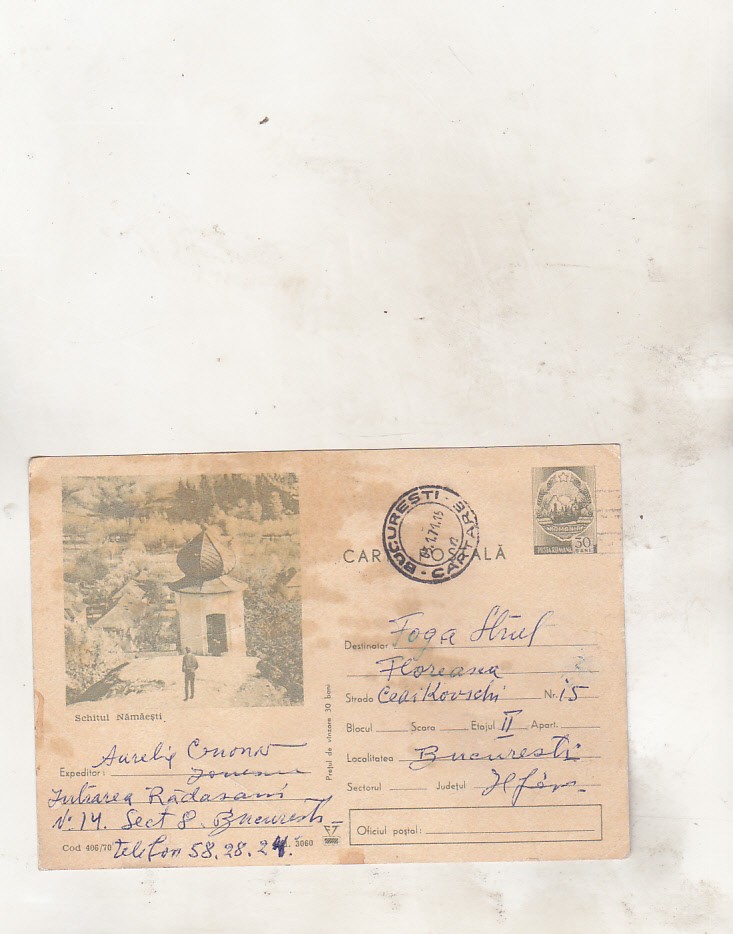 BUCURESTI
CARTARE
POSTA ROMANA
50
BANI
CARTE POSTALĂ
Destinatar Foga
Floreasca
Strada Ceaikovschi Nr. 15
Blocul Scara Etajul II Apart.
Localitatea Bucuresti
Sectorul Județul Ilfov
Oficiul poștal:
Schitul Nămăești
Prețul de vînzare 30 bani
Aurelia
Expeditor:
Intrarea Rădasani
No. 14. Sect 8. Bucuresti
Cod 406/70 telefon 58.28.24. 3060